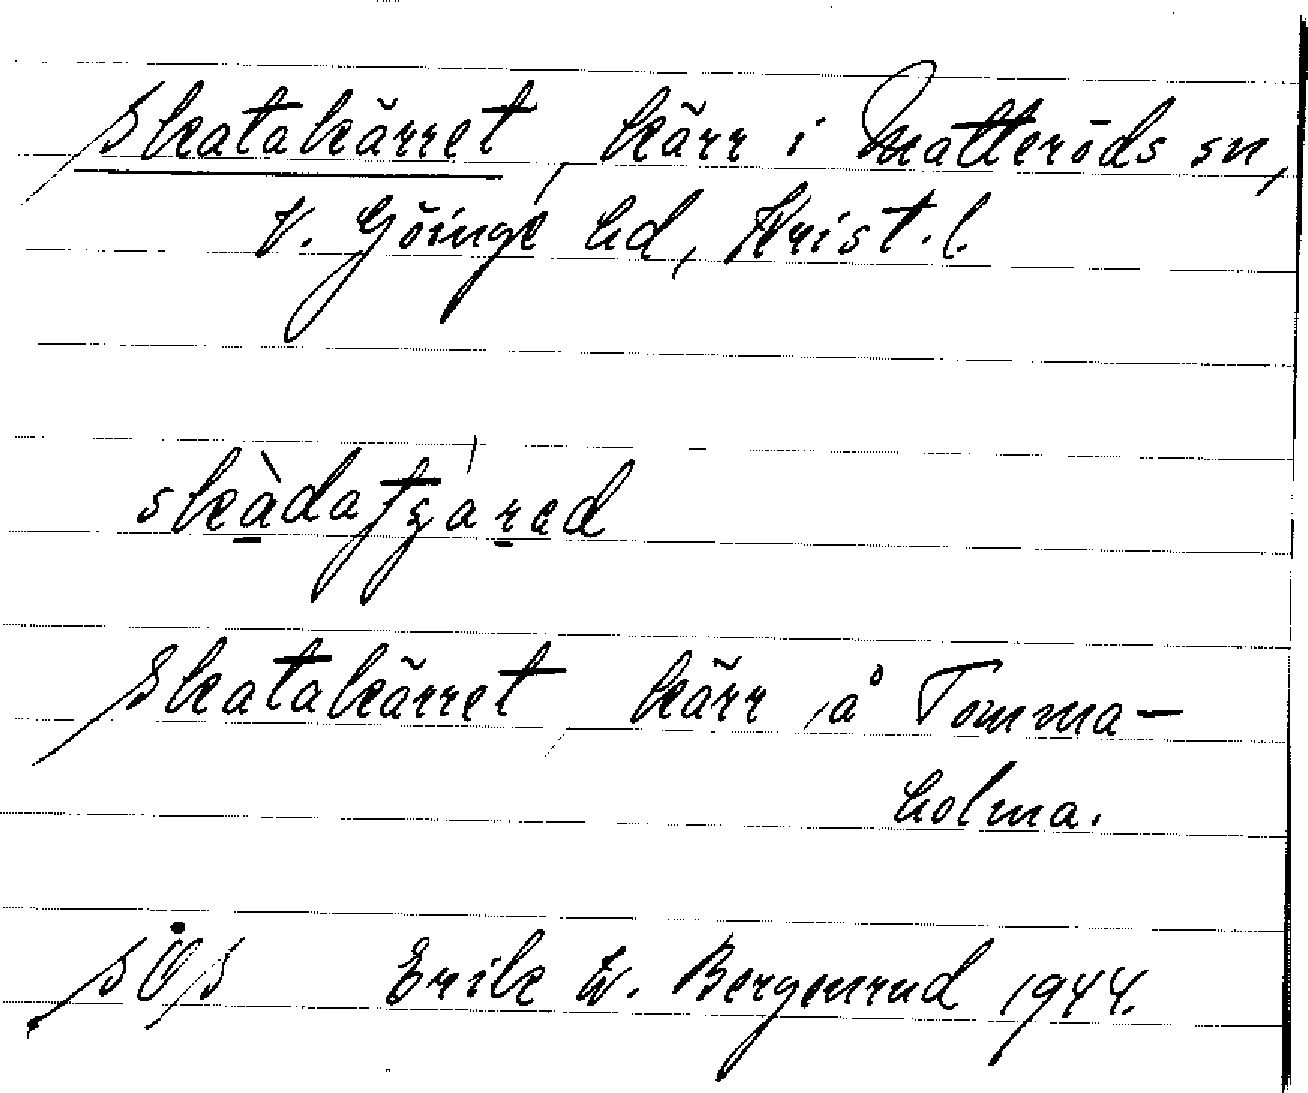 Skatakärret, kärr i Matteröds sn,
V. Göinge hd, Krist. l.
Skatakärret, kärr å Tomma-
holma.
Erik W. Bergenrud 1944.